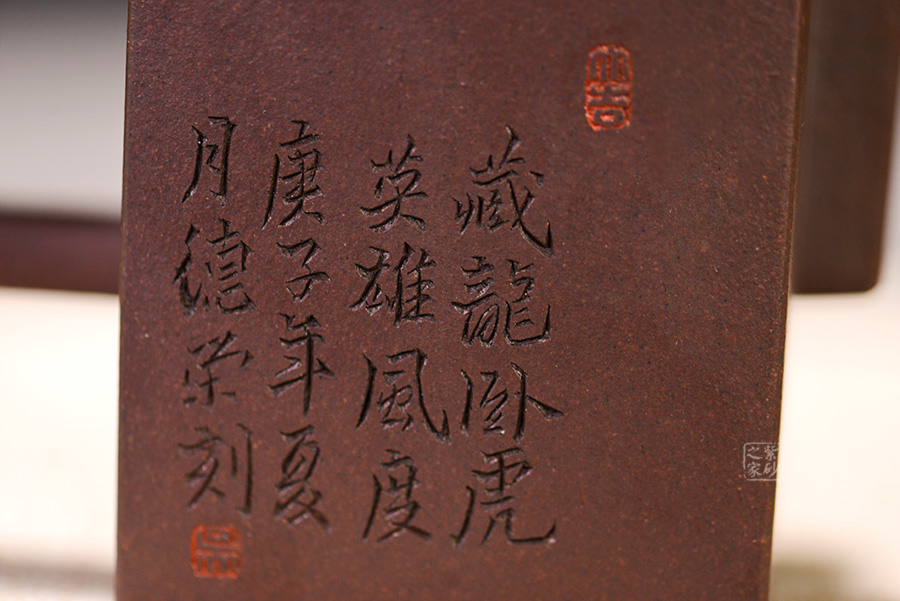 大吉
藏龍卧虎
英雄風度
庚子年夏
月德荣刻
紫砂
之家